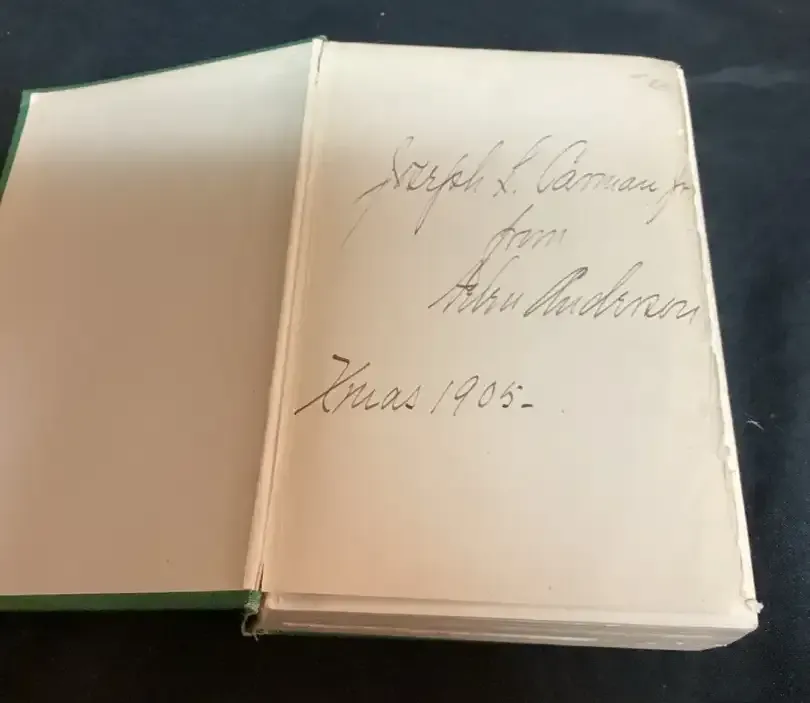 Joseph L. Carman Jr.
from
Anderson
Xmas 1905-